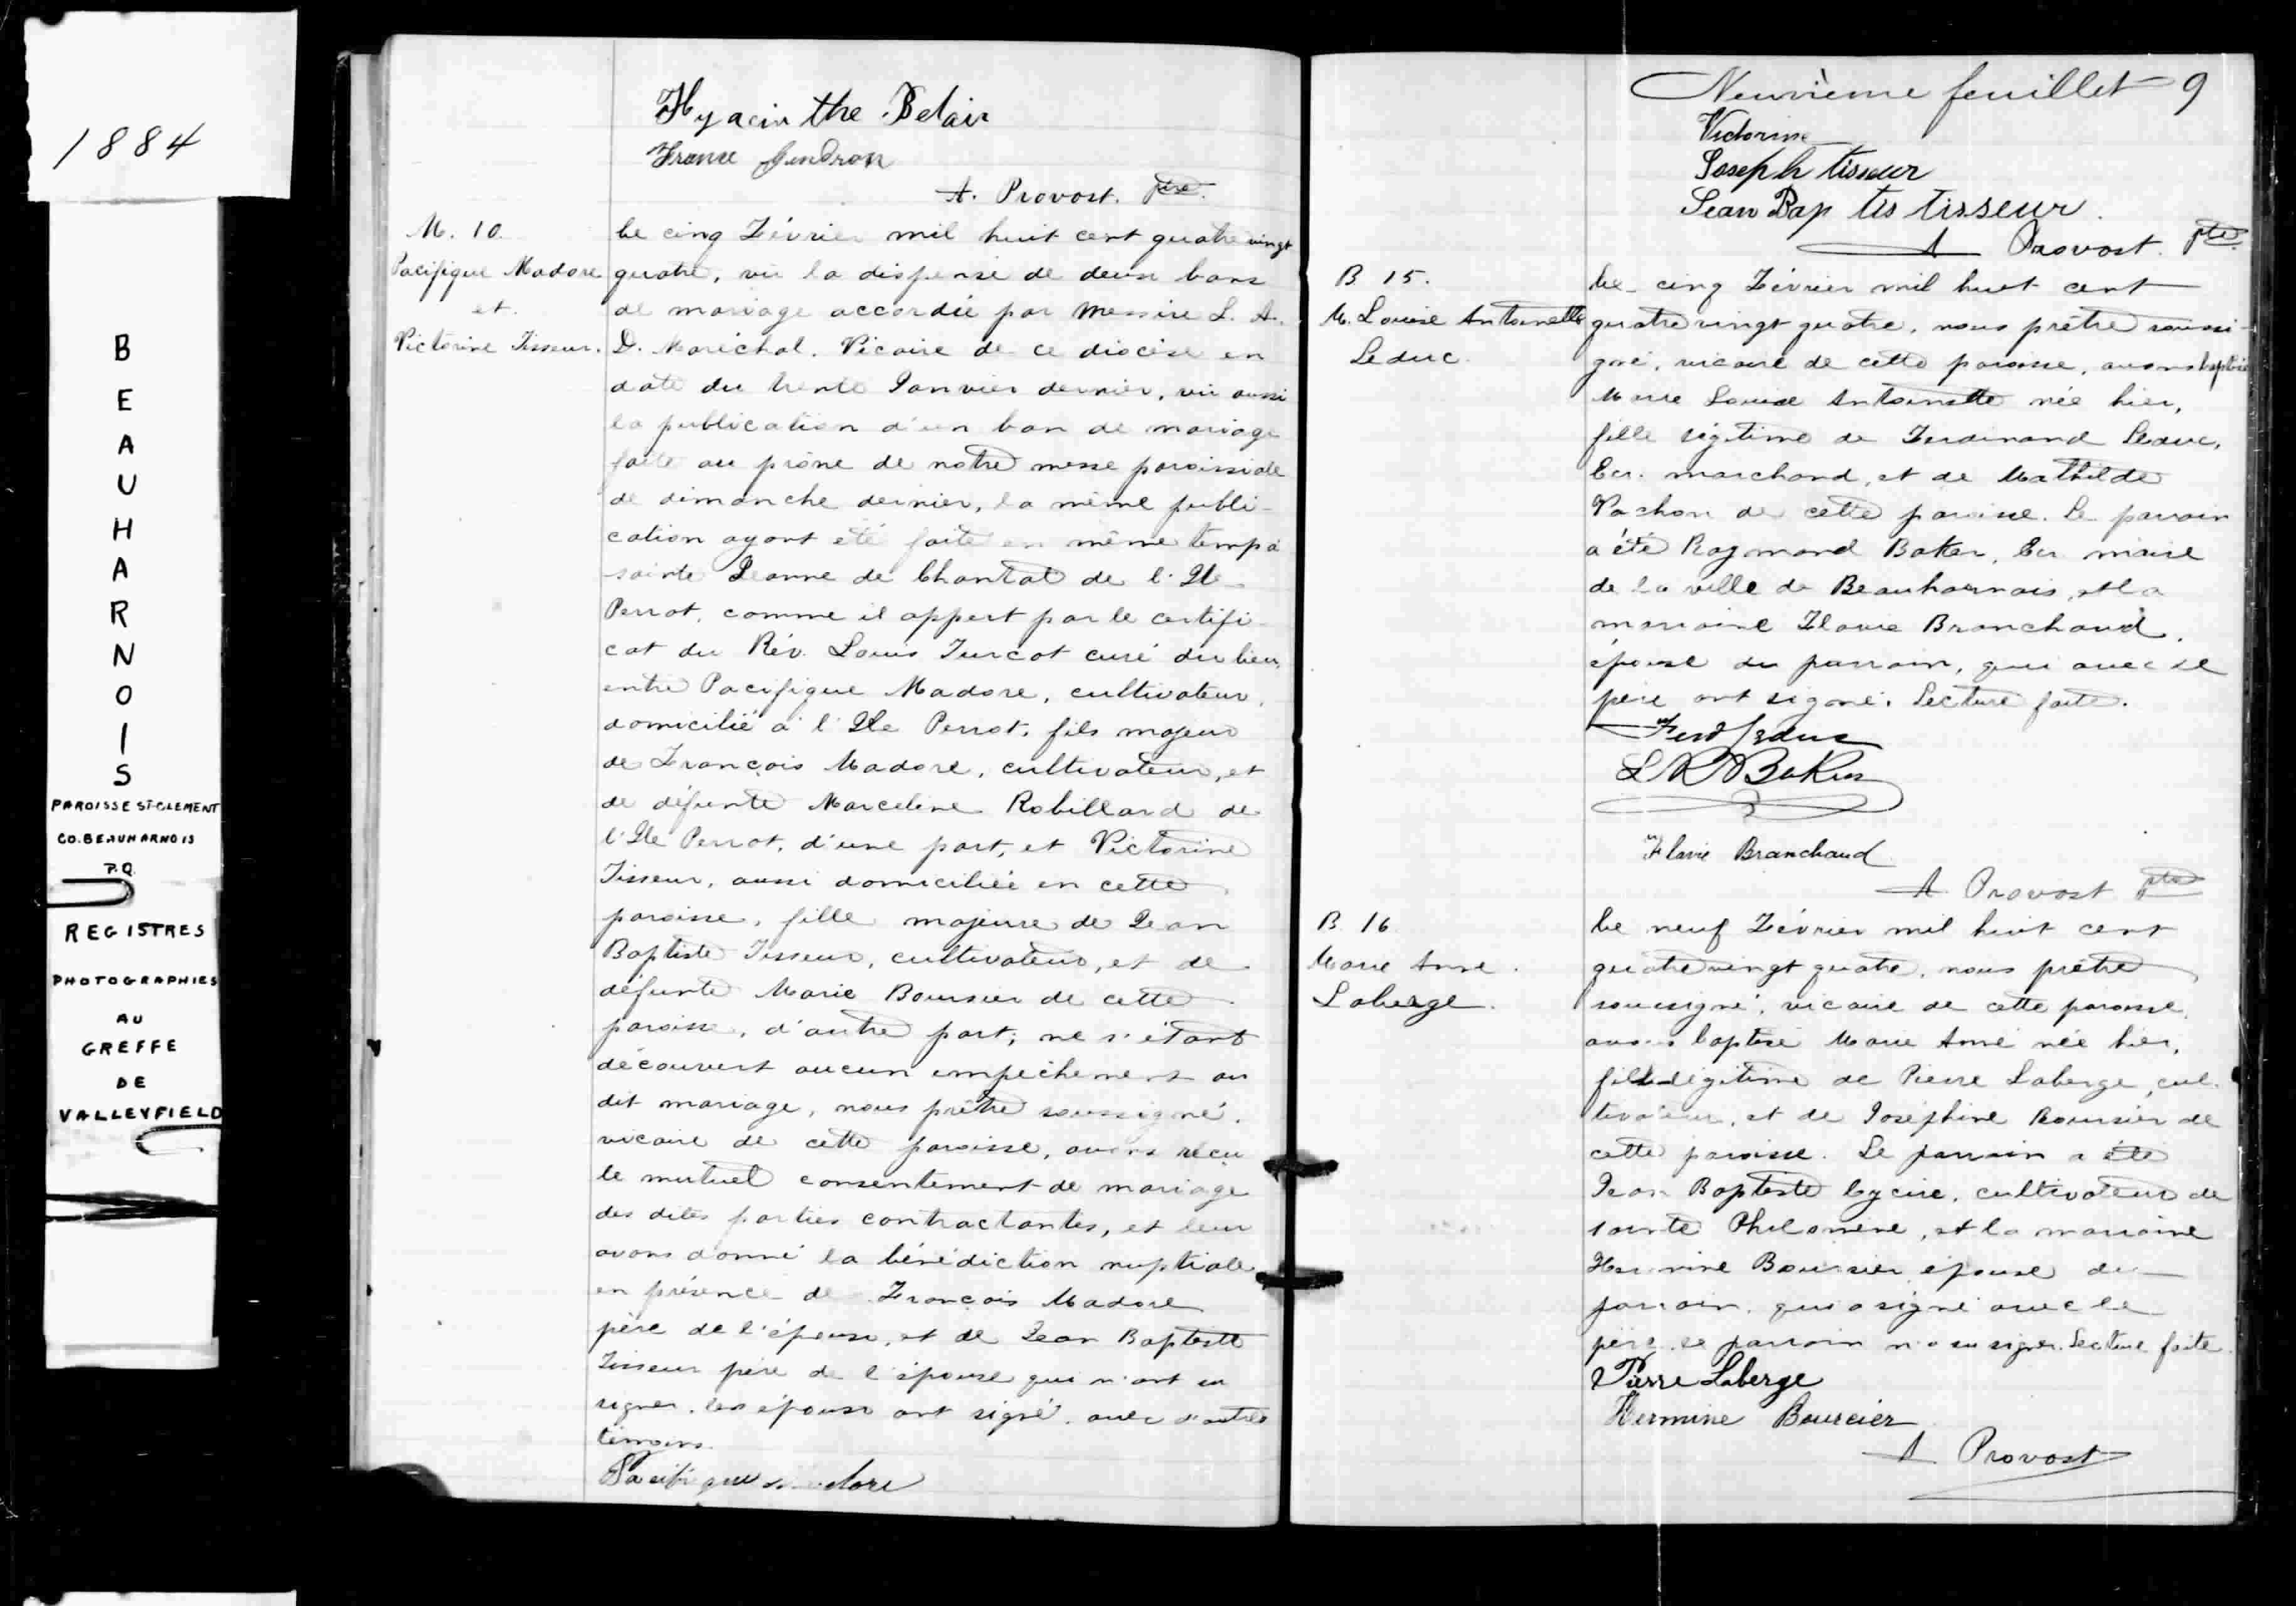 1884
BEAUHARNOIS
PAROISSE ST-CLEMENT
CO. BEAUHARNOIS
P.Q.
REGISTRES
PHOTOGRAPHIES
AU
GREFFE
DE
VALLEYFIELD
Hyacinthe Belair
France Gendron
A. Provost. ptre.
M. 10.
Pacifique Madore
et
Victorine Tisseur.
Le cinq Février mil huit cent quatre vingt
quatre, vu la dispense de deux bans
de mariage accordée par Messire L. A.
D. Maréchal, Vicaire de ce diocèse en
date du trente Janvier dernier, vu aussi
la publication d'un ban de mariage
faite au prône de notre messe paroissiale
de dimanche dernier, la même publi-
cation ayant été faite en même temp à
sainte Jeanne de Chantal de l'Ile
Perrot, comme il appert par le certifi-
cat du Rév. Louis Turcot curé du lieu,
entre Pacifique Madore, cultivateur,
domicilié à l'Ile Perrot, fils majeur
de François Madore, cultivateur, et
de défunte Marceline Robillard de
l'Ile Perrot, d'une part, et Victorine
Tisseur, aussi domiciliée en cette
paroisse, fille majeure de Jean
Baptiste Tisseur, cultivateur, et de
défunte Marie Boursier de cette
paroisse, d'autre part; ne s'étant
découvert aucun empêchement au
dit mariage, nous prêtre soussigné,
vicaire de cette paroisse, avons reçu
le mutuel consentement de mariage
des dites parties contractantes, et leur
avons donné la bénédiction nuptiale
en présence de François Madore
père de l'époux, et de Jean Baptiste
Tisseur père de l'épouse qui n'ont su
signer. les époux ont signé avec d'autres
témoins.
Pacifique Madore
Neuvième feuillet 9
Victorine
Joseph tisseur
Jean Bap tis tisseur.
A Provost. ptre
B 15.
M. Louise Antoinette
Leduc.
Le cinq Février mil huit cent
quatre vingt quatre, nous prêtre soussi-
gné, vicaire de cette paroisse, avons baptisé
Marie Louise Antoinette née hier,
fille légitime de Ferdinand Leduc,
Ecr. marchand, et de Mathilde
Vachon de cette paroisse. Le parrain
a été Raymond Baker, Ecr maire
de la ville de Beauharnois, et la
marraine Flavie Branchaud,
épouse du parrain, qui avec le
père ont signé. Lecture faite.
Ferd Leduc
L R Baker
Flavie Branchaud
A Provost ptre
B. 16
Marie Anne
Laberge.
Le neuf Février mil huit cent
quatre vingt quatre, nous prêtre
soussigné, vicaire de cette paroisse,
avons baptisé Marie Anne née hier,
fille légitime de Pierre Laberge, cul-
tivateur, et de Joséphine Boursier de
cette paroisse. Le parrain a été
Jean Baptiste Cycire, cultivateur de
sainte Philomène, et la marraine
Hermine Boursier épouse du
parrain, qui a signé avec le
père. le parrain n'a su signer. Lecture faite.
Pierre Laberge
Hermine Bourcier
A Provost